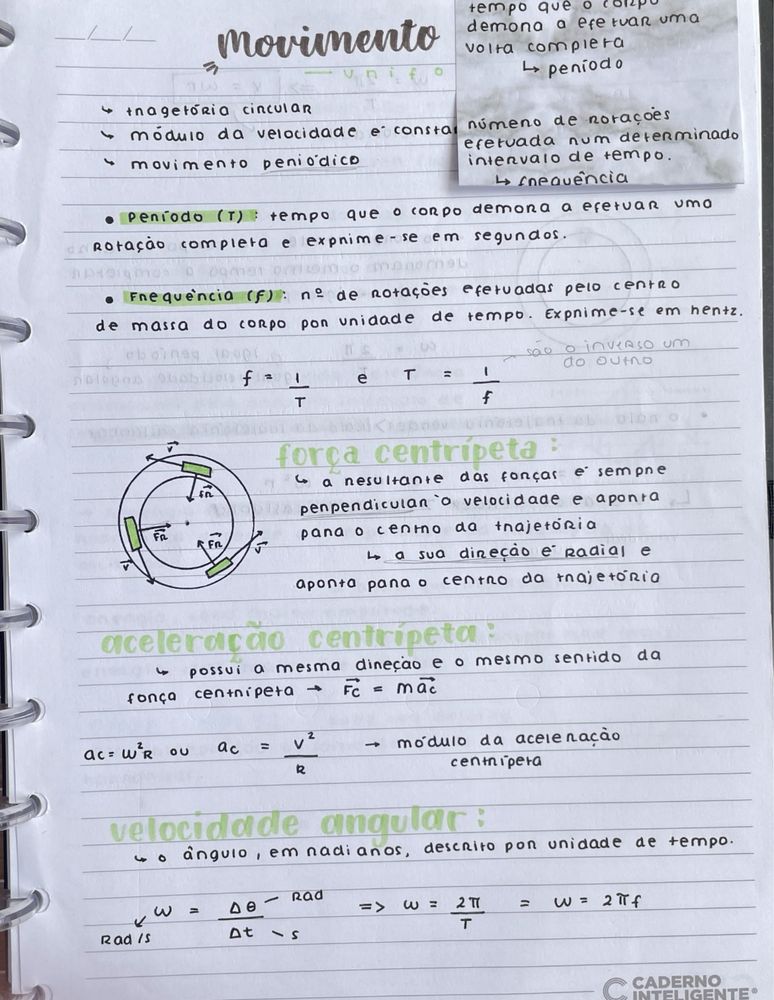 movimento
unifo
↳ trajetória circular
↳ módulo da velocidade é consta
↳ movimento periódico
tempo que o corpo
demora a efetuar uma
volta completa
↳ período
número de rotações
efetuada num determinado
intervalo de tempo.
↳ frequência
• Período (T) : tempo que o corpo demora a efetuar uma
rotação completa e exprime-se em segundos.
• Frequência (f) : nº de rotações efetuadas pelo centro
de massa do corpo por unidade de tempo. Exprime-se em hertz.
f = 1/T e T = 1/f
são o inverso um
do outro
força centrípeta:
↳ a resultante das forças é sempre
perpendicular à velocidade e aponta
para o centro da trajetória
↳ a sua direção é radial e
aponta para o centro da trajetória
v⃗
F⃗R
F⃗R
F⃗R
v⃗
v⃗
aceleração centrípeta:
↳ possui a mesma direção e o mesmo sentido da
força centrípeta → F⃗c = m a⃗c
ac = ω²R ou ac = v²/R → módulo da aceleração
centrípeta
velocidade angular:
↳ o ângulo, em radianos, descrito por unidade de tempo.
ω = Δθ/Δt => ω = 2π/T = ω = 2πf
Rad
s
Rad/s
CADERNO
INTELIGENTE®